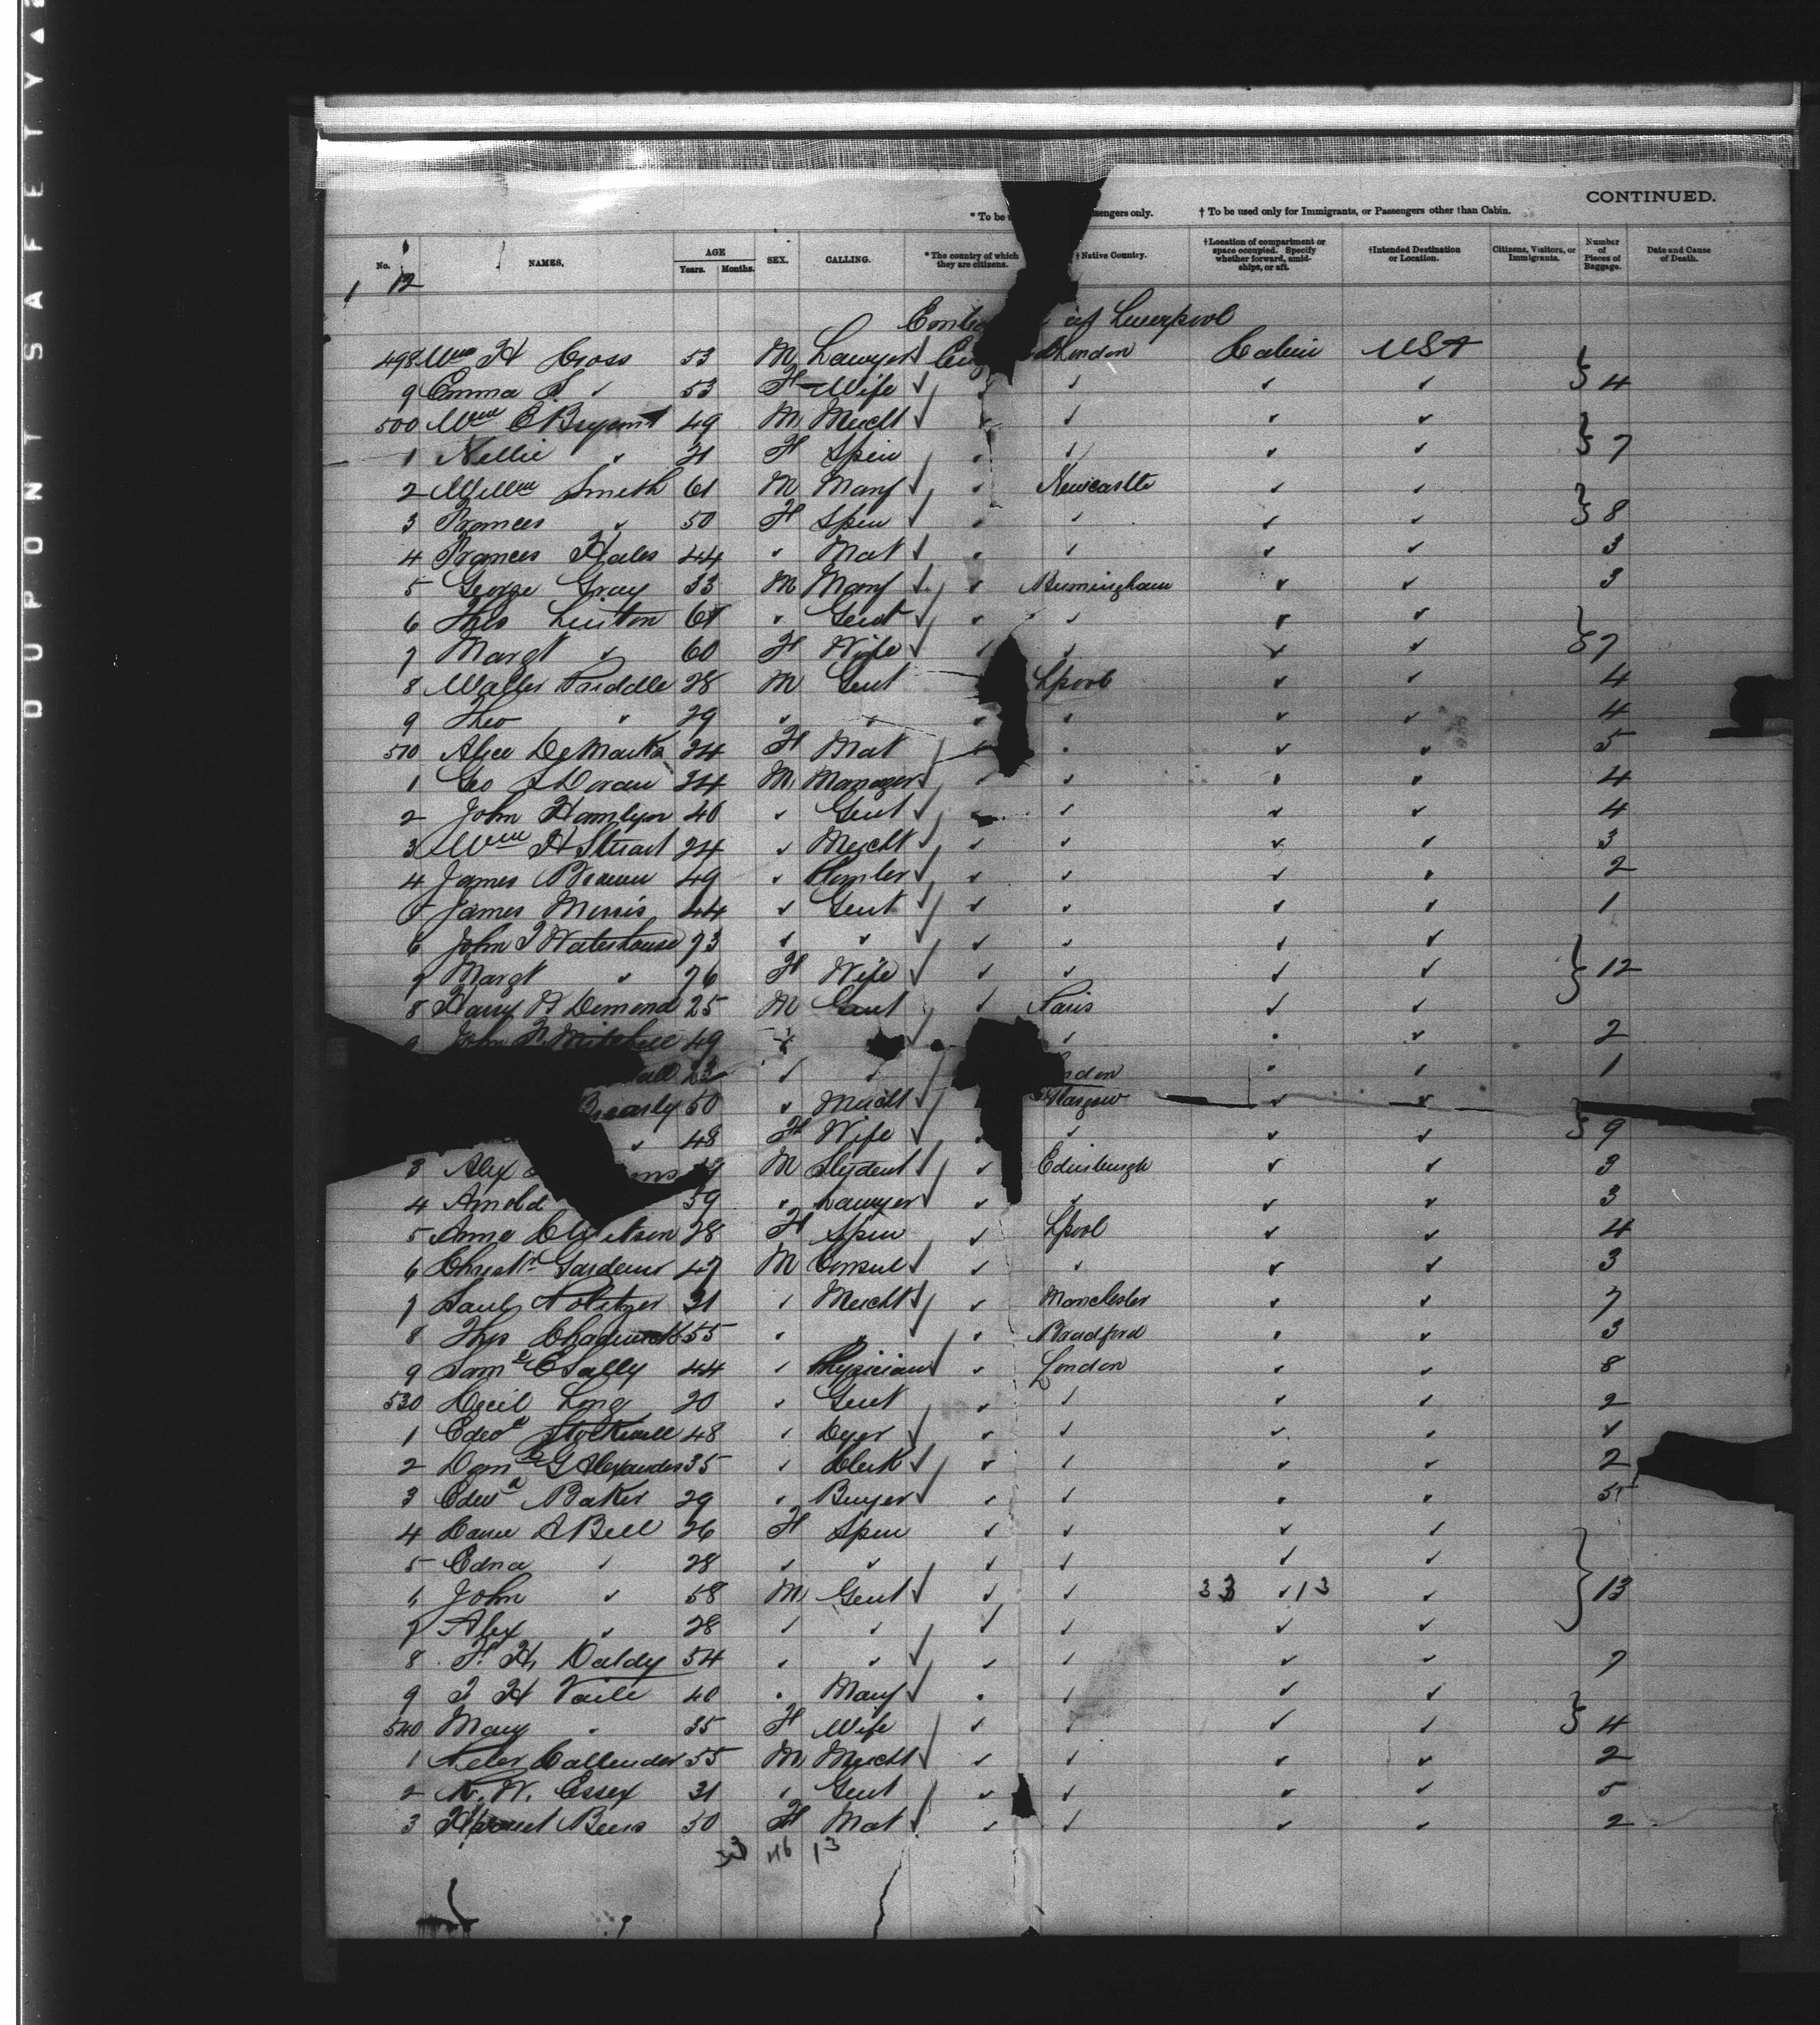 DUPONT SAFETY
CONTINUED.
* To be u sengers only. † To be used only for Immigrants, or Passengers other than Cabin.
No. NAMES. AGE Years. Months. SEX. CALLING. * The country of which they are citizens. † Native Country. †Location of compartment or space occupied. Specify whether forward, amidships, or aft. †Intended Destination or Location. Citizens, Visitors, or Immigrants. Number of Pieces of Baggage. Date and Cause of Death.
1 12
at Liverpool
498 Wm H Cross 53 M Lawyer London Cabin USA
9 Emma S ✓ 53 F Wife ✓ ✓ ✓ ✓ } 4
500 Wm C Bryant 49 M Mercht ✓ ✓ ✓ ✓
1 Nellie ✓ 21 F Spin ✓ ✓ ✓ } 7
2 Willm Smith 61 M Manf ✓ Newcastle ✓ ✓
3 Frances ✓ 50 F Spin ✓ ✓ ✓ ✓ } 8
4 Frances Hales 44 ✓ Mat ✓ ✓ ✓ ✓ 3
5 George Gray 33 M Manf ✓ ✓ Birmingham ✓ ✓ 3
6 Thos Linton 61 ✓ Gent ✓ ✓ ✓ ✓ ✓
7 Margt ✓ 60 F Wife ✓ ✓ ✓ ✓ ✓ } 7
8 Walter 28 M Gent Lpool ✓ ✓ 4
9 Theo ✓ 29 ✓ ✓ ✓ ✓ ✓ ✓ 4
510 Alice 24 F Mat ✓ ✓ ✓ ✓ 5
1 Geo Doran 24 M Manager ✓ ✓ ✓ ✓ ✓ 4
2 John Hamlyn 40 ✓ Gent ✓ ✓ ✓ ✓ 4
3 Wm H Stuart 24 ✓ Mercht ✓ ✓ ✓ ✓ ✓ 3
4 James Brown 49 ✓ ✓ ✓ ✓ ✓ 2
5 James Morris 44 ✓ Gent ✓ ✓ ✓ ✓ ✓ 1
6 John T Waterhouse 73 ✓ ✓ ✓ ✓ ✓ ✓ ✓
7 Margt ✓ 76 F Wife ✓ ✓ ✓ ✓ ✓ } 12
8 Harry Demond 25 M Gent ✓ Paris ✓ ✓
9 John Mitchell 49 ✓ ✓ ✓ ✓ 2
all ✓ ✓ ndon ✓ ✓ 1
50 ✓ Mercht ✓ Glasgow ✓ ✓
✓ 48 F Wife ✓ ✓ ✓ ✓ } 9
3 Alex M Student ✓ ✓ Edinburgh ✓ ✓ 3
4 Arnold 39 ✓ Lawyer ✓ ✓ ✓ ✓ 3
5 Anna 28 F Spin ✓ Lpool ✓ ✓ 4
6 47 M Consul ✓ ✓ ✓ ✓ ✓ 3
7 31 ✓ Mercht ✓ ✓ Manchester ✓ ✓ 7
8 Thos Chadwick 55 ✓ ✓ ✓ ✓ Bradford ✓ ✓ 3
9 Saml C Sally 44 ✓ Physician ✓ London ✓ ✓ 8
530 Cecil Long 20 ✓ Gent ✓ ✓ ✓ ✓ 2
1 Edwd Stockwell 48 ✓ Dyer ✓ ✓ ✓ ✓ ✓ ✓
2 Danl G Alexander 35 ✓ Clerk ✓ ✓ ✓ ✓ ✓ 2
3 Edwd Baker 29 ✓ Buyer ✓ ✓ ✓ ✓ ✓ 5
4 A Bell 26 F Spin ✓ ✓ ✓ ✓
5 Edna ✓ 28 ✓ ✓ ✓ ✓ ✓ ✓
6 John ✓ 58 M Gent ✓ ✓ ✓ 33 ✓ 13 ✓ } 13
7 Alex ✓ 28 ✓ ✓ ✓ ✓ ✓ ✓
8 F. H. Daldy 54 ✓ ✓ ✓ ✓ ✓ ✓ ✓ 7
9 T H Vaile 40 ✓ Manf ✓ ✓ ✓ ✓ ✓
540 Mary ✓ 35 F Wife ✓ ✓ ✓ ✓ } 4
1 Peter Callender 55 M Mercht ✓ ✓ ✓ ✓ ✓ 2
2 W. Essex 31 ✓ Gent ✓ ✓ ✓ ✓ 5
3 50 F Mat ✓ ✓ ✓ ✓ ✓ 2
33 46 13